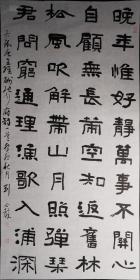 晚年惟好靜萬事不關心
自顧無長策空知返舊林
松風吹解帶山月照彈琴
君問窮通理漁歌入浦深